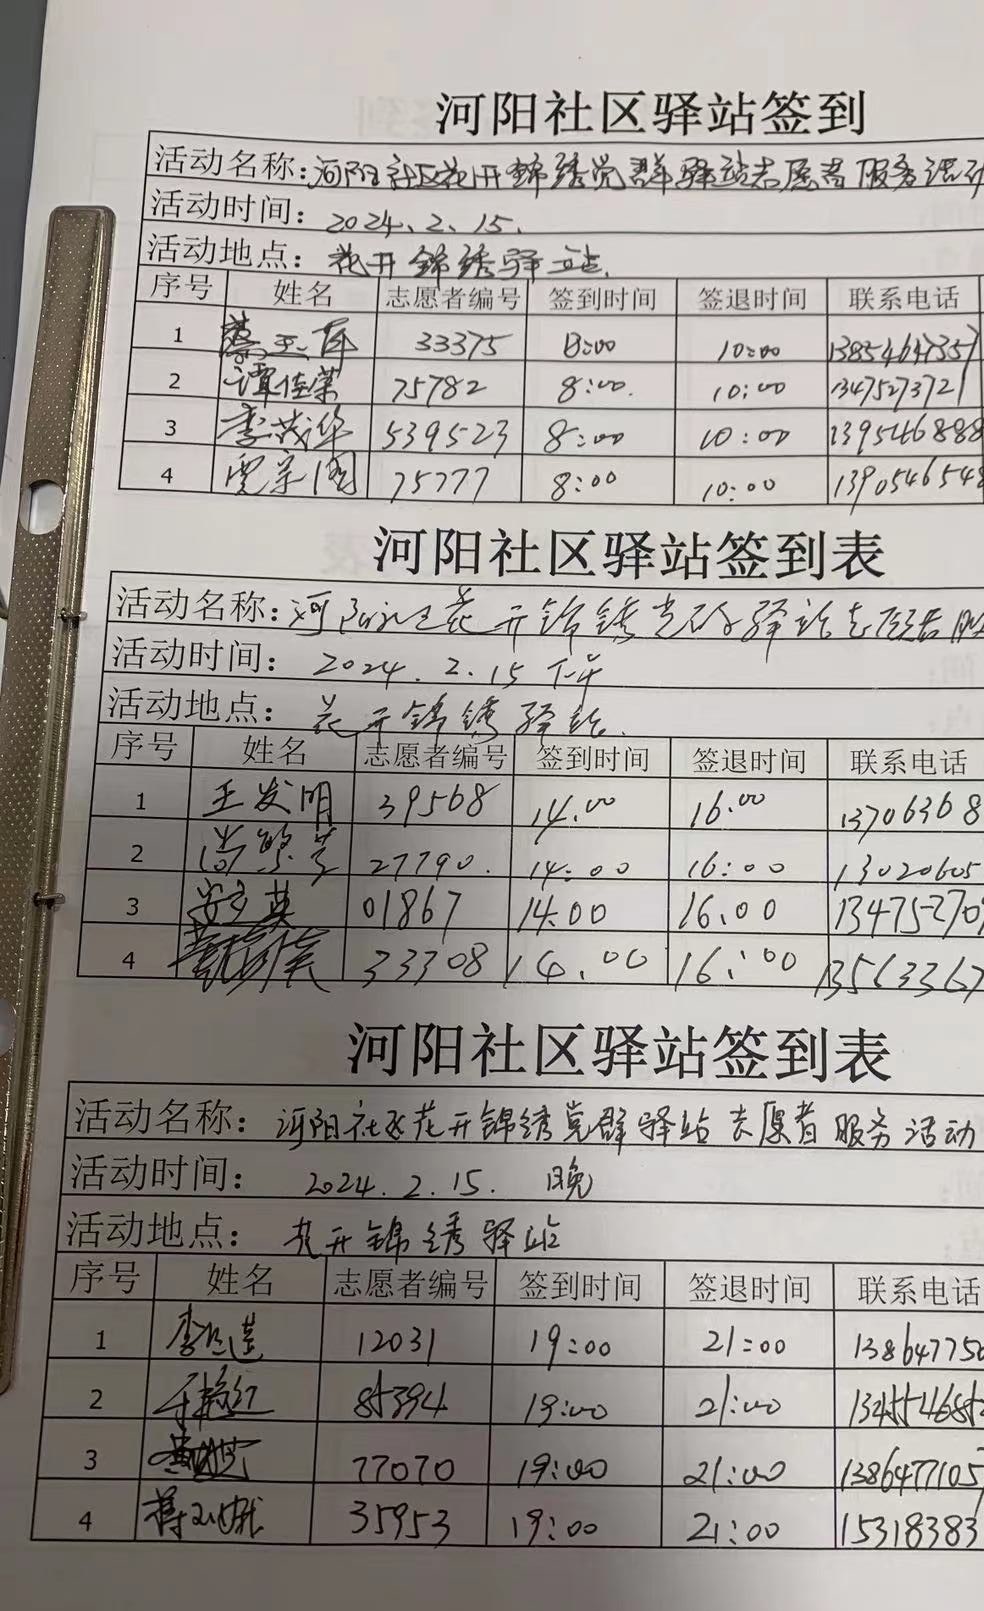 河阳社区驿站签到
活动名称:河阳社区花开锦绣党群驿站志愿者服务活动
活动时间: 2024.2.15.
活动地点: 花开锦绣驿站.
序号 姓名 志愿者编号 签到时间 签退时间 联系电话
1 33375 8:00 10:00 13854647357
2 谭佳荣 75782 8:00. 10:00 1347527372
3 李茂华 539523 8:00 10:00 139546888
4 贾宗图 75777 8:00 10:00 1390546548
河阳社区驿站签到表
活动名称:河阳社区花开锦绣党群驿站志愿者服
活动时间: 2024.2.15 下午
活动地点: 花开锦绣驿站.
序号 姓名 志愿者编号 签到时间 签退时间 联系电话
1 王发明 39568 14.00 16.00 13706368
2 27790. 14:00 16:00 13020605
3 01867 14.00 16.00 134752709
4 33308 14.00 16:00 13563367
河阳社区驿站签到表
活动名称: 河阳社区花开锦绣党群驿站志愿者服务活动
活动时间: 2024.2.15. 晚
活动地点: 花开锦绣驿站
序号 姓名 志愿者编号 签到时间 签退时间 联系电话
1 12031 19:00 21:00 138647750
2 于艳红 85394 19:00 21:00 134554685
3 77070 19:00 21:00 1386477105
4 35953 19:00 21:00 15318383